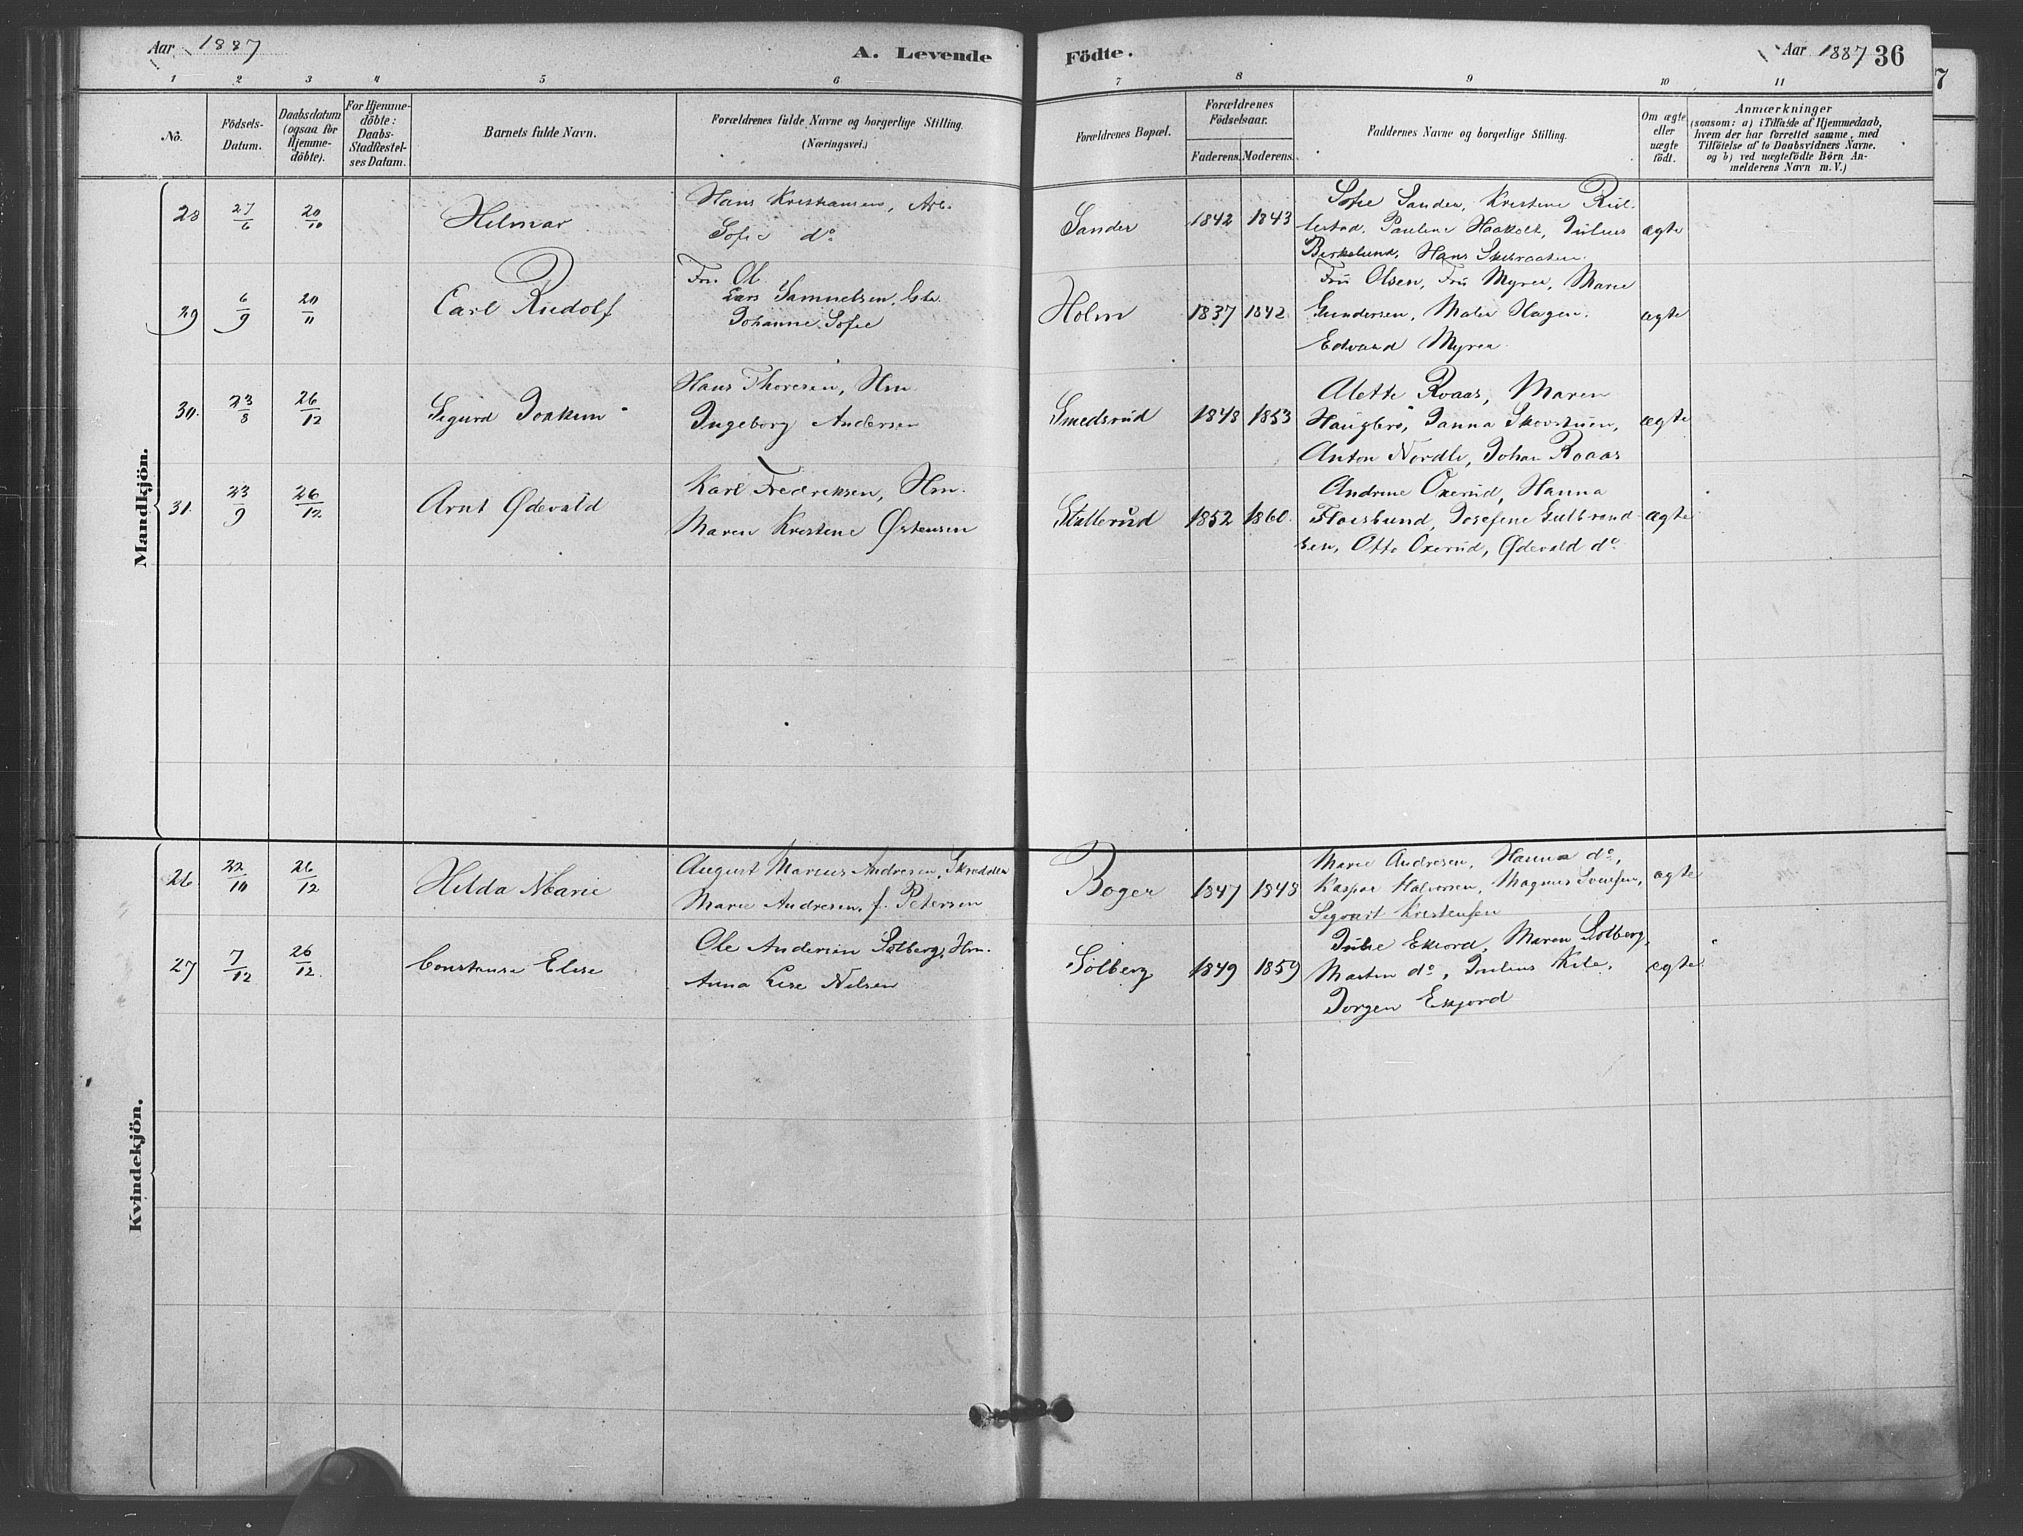 Aar 1887 A. Levende Födte. Aar 1887 36
1 2 3 4 5 6 7 8 9 10 11
No. Födsels-Datum. Daabsdatum (ogsaa for Hjemmedöbte). For Hjemmedöbte: Daabs-Stadfæstelses Datum. Barnets fulde Navn. Forældrenes fulde Navne og borgerlige Stilling. (Næringsvei.) Forældrenes Bopæl. Forældrenes Födselsaar. Faderens. Moderens. Faddernes Navne og borgerlige Stilling. Om ægte eller uægte födt. Anmærkninger (saasom: a) i Tilfælde af Hjemmedaab, hvem der har forrettet samme, med Tilföielse af to Daabsvidners Navne. og b) ved uægtefödte Börn Anmelderens Navn m. V.)
Mandkjön.
28 27/6 20/10 Hilmar Hans Kristiansen, Arb. Sander 1842 1843 Sofie Sander, Kristine
Sofie do Pauline Julius ægte
Birkelund, Hans
29 6/9 20/11 Carl Rudolf Fru. Ol Holm 1837 1842 Fru Olsen, Fru Myrer, Marie
Lars Samuelsen, Gundersen, Hagen. ægte
Johanne Sofie Edvard Myrer
30. 23/8 26/12 Sigurd Joakim Hans Thoresen, Hm Smedsrud 1848 1853 Alette Roaas, Maren
Ingeborg Andersen Haugbro, Janna Skovstuen, ægte
Anton Nordli, Johan Roaas
31. 23/9 26/12 Arnt Ødevald Karl Fredriksen, Hm. Stallerud 1852 1860. Andrine Oxerud, Hanna
Maren Kristine Østensen Flaesbund, Josefine Gulbrand ægte
sen, Otto Oxerud, Ødevald do
Kvindekjön.
26. 22/10 26/12 Hilda Marie August Marius Andresen, Skrædder Boger 1847 1848 Marie Andresen, Hanna do, ægte
Marie Andresen, f. Petersen Kaspar Halvorsen, Magnus
Sigvart Kristensen
27 7/12 26/12. Constanse Elise Ole Andersen Solberg, Hm. Solberg 1849 1859 Julie Exjord, Maren Solberg,
Anna Lise Nilsen Martin do, Julius ægte
Jorgen Exjord